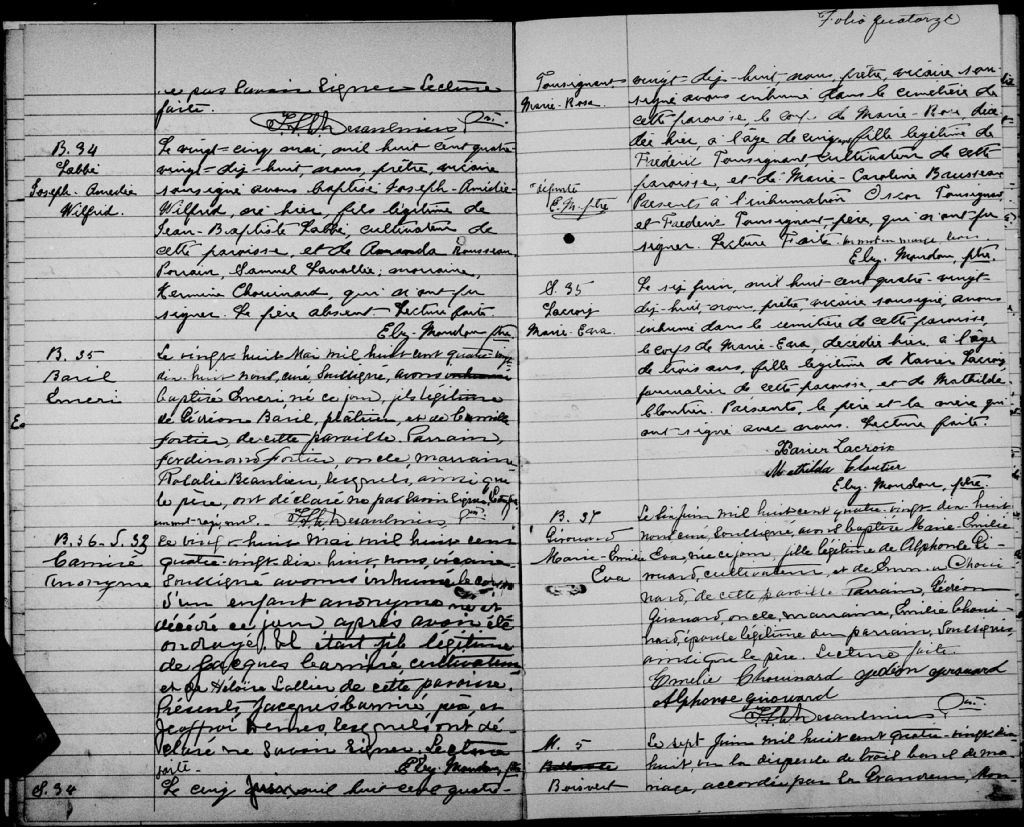 et pas savoir signer. Lecture
faite.
Ptre.
B. 34
Labbé
Joseph-Amédée
Wilfrid.
Le vingt-cinq mai, mil huit cent quatre
vingt-dix-huit, nous, prêtre, vicaire
soussigné avons baptisé Joseph-Amédée-
Wilfrid, né hier, fils légitime de
Jean-Baptiste Labbé, cultivateur de
cette paroisse, et de Amanda Rousseau.
Parrain, Samuel Lavallée; marraine,
Hermine Chouinard, qui n'ont pu
signer. Le père absent. Lecture faite.
Elz. Mondou, ptre
B. 35
Baril
Emeri
Le vingt huit Mai mil huit cent quatre vingt
dix huit nous, curé soussigné, avons inhumé
baptisé Emeri né ce jour, fils légitime
de Gédéon Baril, et de Camille
Fortier de cette paroisse. Parrain,
Ferdinand Fortier, oncle, marraine
Rosalie Beaulieu, lesquels, ainsi que
le père, ont déclaré ne pas savoir signer. Lecture
un mot rayé nul.
B. 36-S. 33
Camiré
Anonyme
Le vingt huit Mai mil huit cent
quatre-vingt-dix-huit, nous, vicaire
soussigné avons inhumé le corps
d'un enfant anonyme né et
décédé ce jour après avoir été
ondoyé. Il était fils légitime
de Jacques Camiré cultivateur
et de Héloïse Lallier de cette paroisse.
Présents Jacques Camiré, père, et
lesquels ont dé-
claré ne savoir signer. Lecture
faite. Elz. Mondou, ptre
S. 34
Le cinq Juin, mil huit cent quatre-
Folio quatorze
Tousignant
Marie-Rose
E. M. ptre
vingt-dix-huit nous, prêtre, vicaire sous-
signé avons inhumé dans le cimetière de
cette paroisse, le corps de Marie-Rose décé-
dée hier, à l'âge de cinq fille légitime de
Frédéric Tousignant cultivateur de cette
paroisse, et de Marie-Caroline Brusseau
Présents à l'inhumation Oscar Tousignant
et Frédéric Tousignant-père, qui n'ont pu
signer. Lecture Faite. un mot en marge, bon
Elz. Mondou, ptre.
S. 35
Lacroix
Marie-Eva.
Le six juin, mil huit-cent-quatre-vingt-
dix-huit nous, prêtre, vicaire soussigné, avons
inhumé dans le cimetière de cette paroisse,
le corps de Marie-Eva, décédée hier, à l'âge
de trois ans, fille légitime de Xavier Lacroix,
journalier de cette paroisse, et de Mathilde
Cloutier. Présents, le père et la mère qui
ont signé avec nous. Lecture faite.
Xavier Lacroix
Mathilda Cloutier
Elz. Mondou, ptre.
B. 37
Girouard
Marie-Emilie
Eva
Le six Juin mil huit cent quatre-vingt-dix-huit
nous curé, soussigné, avons baptisé Marie-Emilie
Eva, née ce jour, fille légitime de Alphonse Gi-
rouard, cultivateur, et de Emma Choui
nard, de cette paroisse. Parrain, Gédéon
Girouard, oncle, marraine, Emilie Choui-
nard, épouse légitime du parrain, soussignés,
ainsi que le père. Lecture faite.
Emelie Chouinard gedéon girouard
Alphonse girouard
Ptre.
M. 5
Boisvert
Le sept Juin mil huit cent quatre-vingt-dix
huit, vu la dispense de trois bans de ma-
riage, accordée par la Grandeur, Mon-